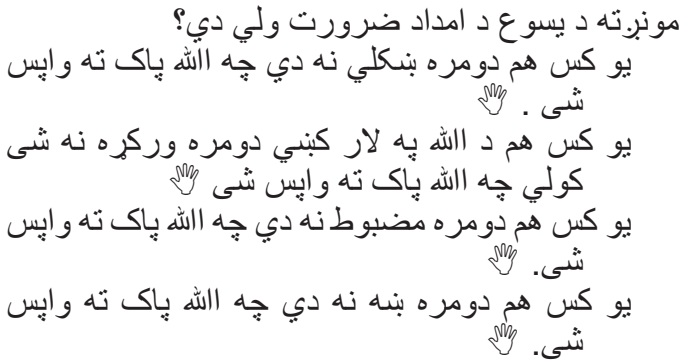 مونږته د يسوع د امداد ضرورت ولي دي؟
يو کس هم دومره ښکلي نه دي چه االله پاک ته واپس
شی . 👋
يو کس هم د االله په لار کښي دومره ورکړه نه شی
کولي چه االله پاک ته واپس شی 👋
يو کس هم دومره مضبوط نه دي چه االله پاک ته واپس
شی. 👋
يو کس هم دومره ښه نه دي چه االله پاک ته واپس
شی. 👋